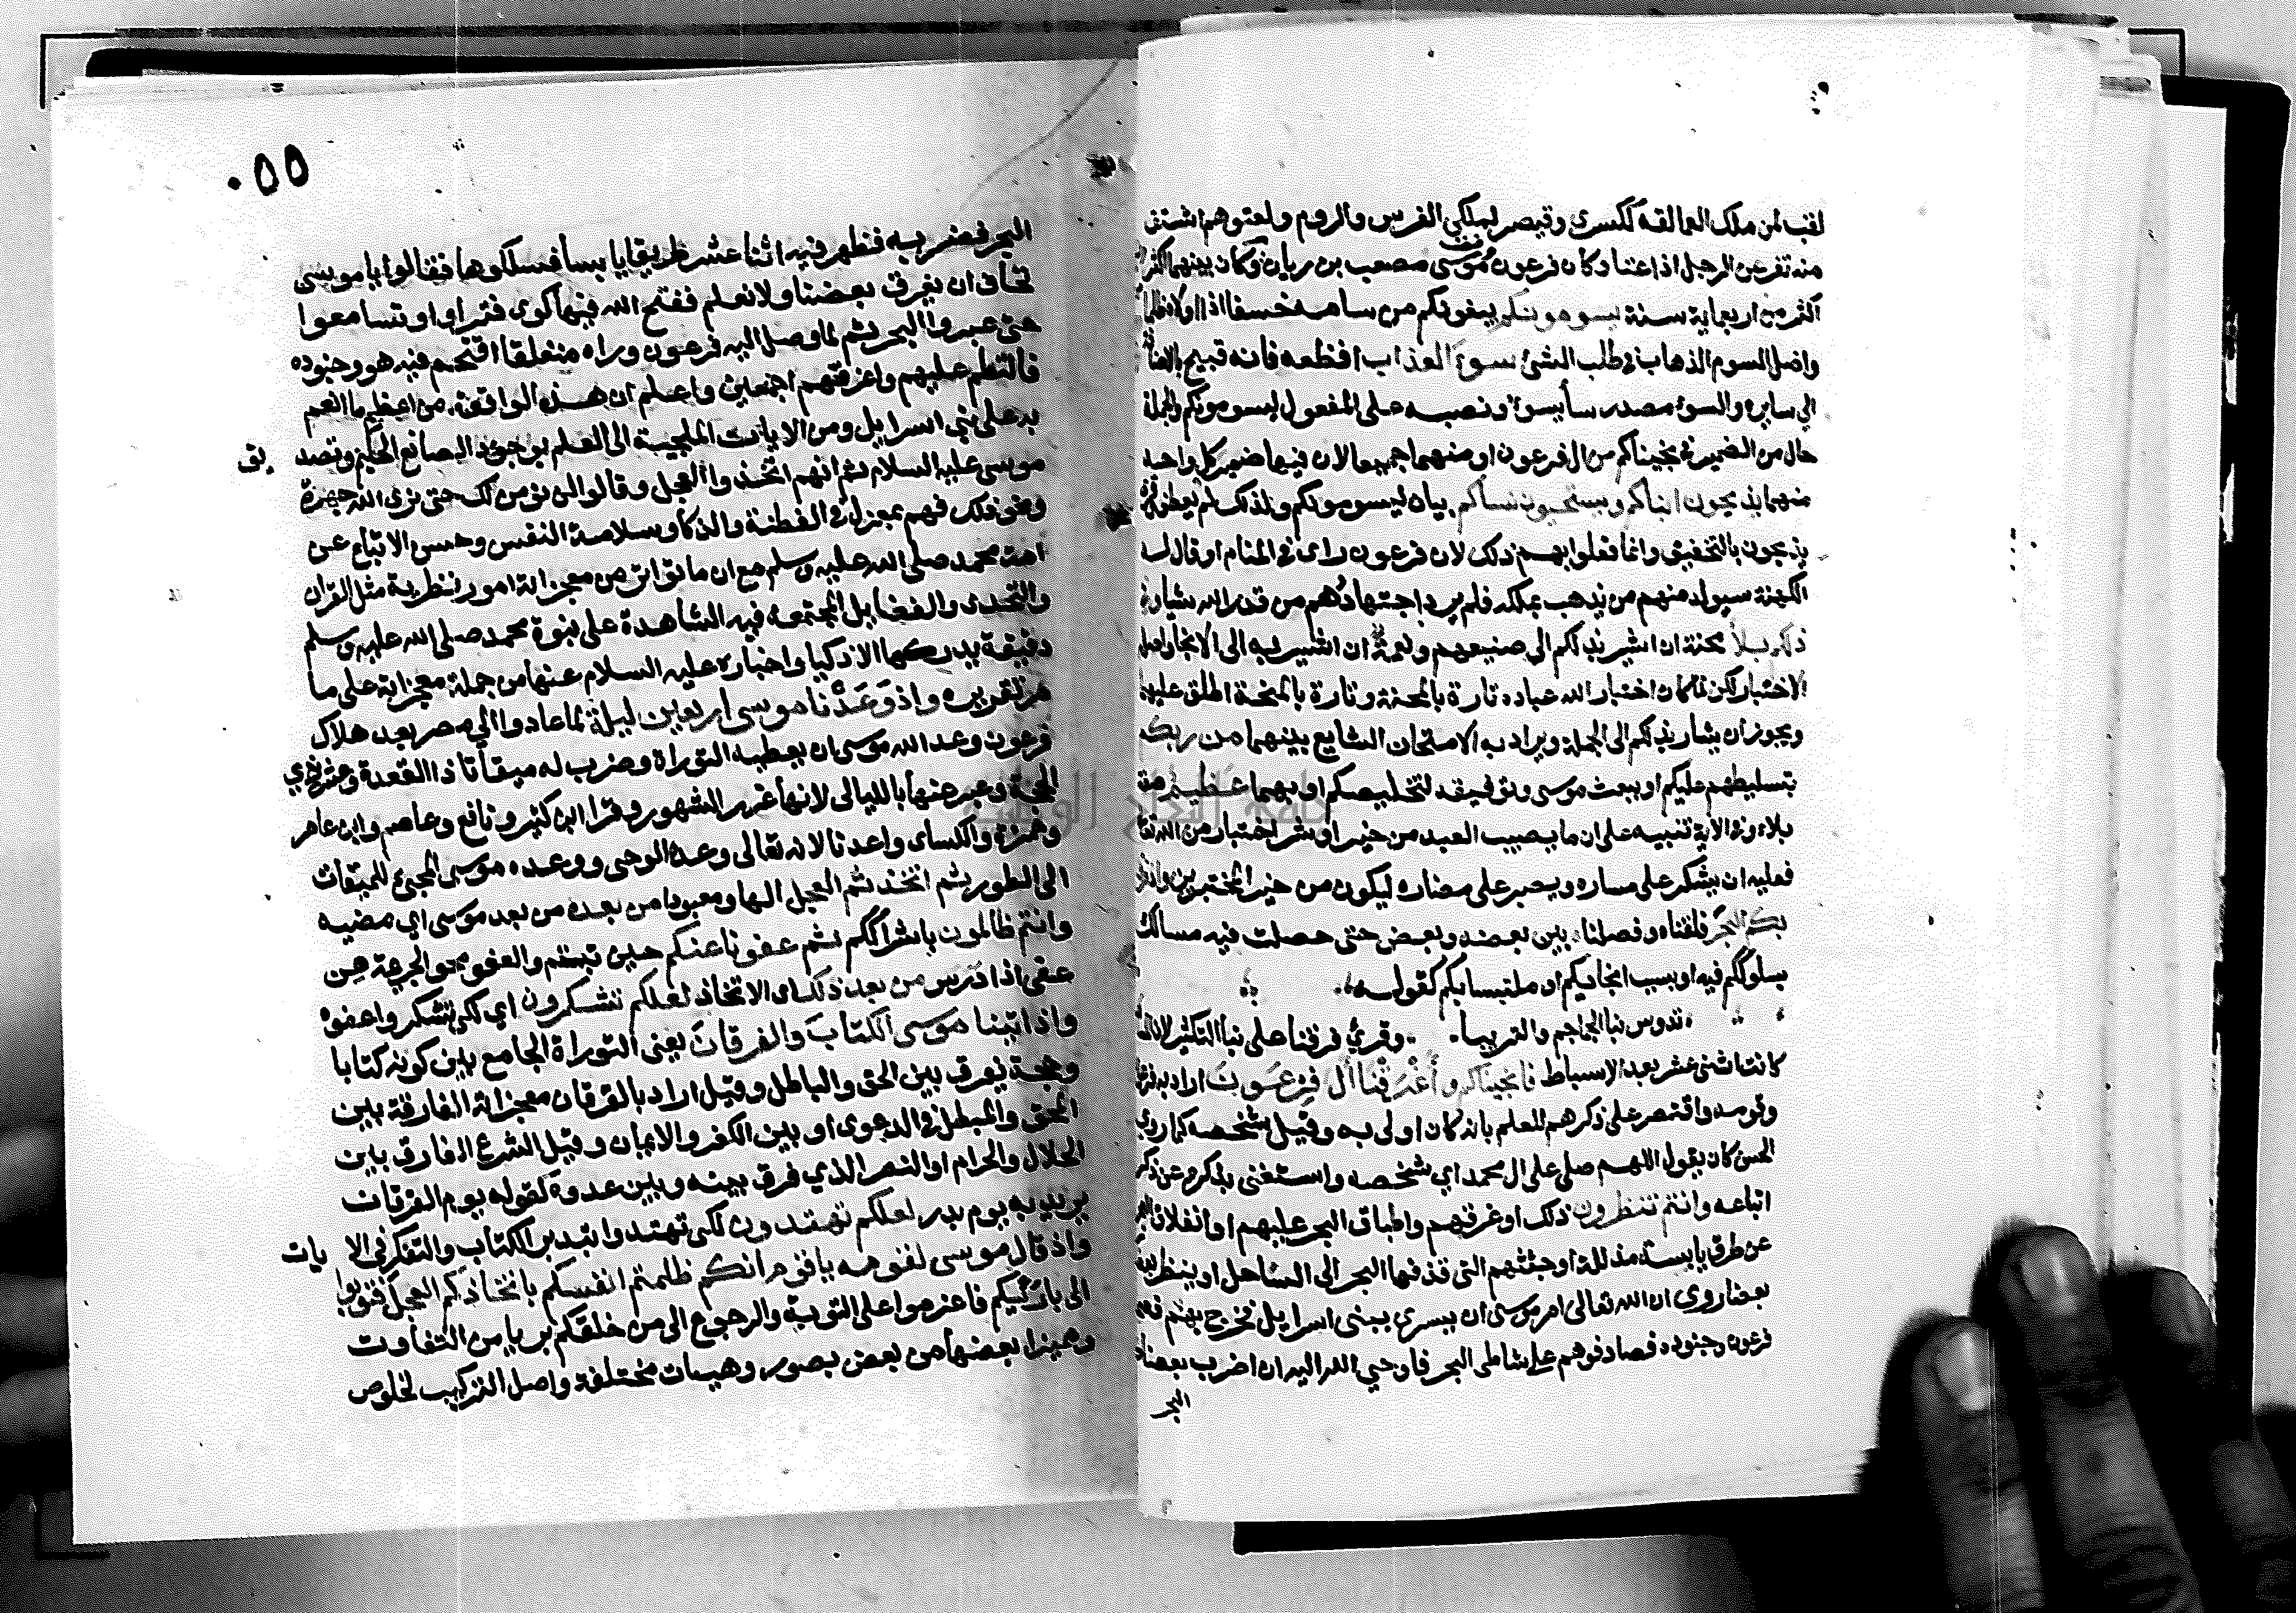 لقب لمن ملك العمالقه ككسرى وقيصر لملكي الفرس والروم ولعتوهم اشتق
منه تفرعن الرجل اذا عتا وكان فرعون موسى مصعب بن ريان وكان بينهما اكثر
اكثر من اربعماية سنة يسومونكم يبغونكم من سامه خسفا اذا اولاه ظلما
واصل السوم الذهاب في طلب الشئ سوء العذاب افظعه فانه قبيح بالاضافة
الي سايره والسوء مصدر ساء يسوء ونصبه على المفعول ليسومونكم والجملة
حال من الضمير في نجيناكم من ال فرعون او منهما جميعا لان فيها ضمير كل واحد
منهما يذبحون ابناكم ويستحيون نساكم بيان ليسومونكم ولذلك لم يعطف وقرئ
يذبحون بالتخفيف وانما فعلوا بهم ذلك لان فرعون راى في المنام او قال له
الكهنة سيولد منهم من يذهب بملكه فلم يرد اجتهادهم من قدر الله شيا وفي
ذلكم بلاء محنة ان اشير بذلكم الي صنيعهم ونعمة ان اشير به الى الانجا واصله
الاختبار لكن لما كان اختبار الله عباده تارة بالمحنة وتارة بالمنحة اطلق عليهما
ويجوز ان يشار بذلكم الى الجملة ويراد به الامتحان الشايع بينهما من ربكم
بتسليطهم عليكم او ببعث موسى وتوفيقه لتخليصكم او بهما عظيم صفة
بلاء وفي الاية تنبيه على ان ما يصيب العبد من خير او شر اختبار من الله تعا
فعليه ان يشكر على مساره ويصبر على مضاره ليكون من خير المختبرين واذ فرقنا
بكم البحر فلقناه وفصلنا بين بعضه وبعض حتى حصلت فيه مسالك
بسلوككم فيه او بسبب انجائكم او ملتبسا بكم كقوله
تدوس بنا الجماجم والتريبا وقرئ فرقنا على بنا التكثير لان المسالك
كانت اثنى عشر بعدد الاسباط فانجيناكم وأغرقنا أل فرعون اراد به فرعون
وقومه واقتصر على ذكرهم للعلم بانه كان اولى به وقيل شخصه كما روي
الحسن كان يقول اللهم صلى على ال محمد اي شخصه واستغنى بذكره عن ذكر
اتباعه وانتم تنظرون ذلك او غرقهم واطباق البحر عليهم او انفلاق البحر
عن طرق يابسة مذللة او جثثهم التي قذفها البحر الى الساحل او ينظر بعضكم
بعضا روى ان الله تعالى امر موسى ان يسري ببنى اسرايل فخرج بهم فصبحهم
فرعون وجنوده فصادفوهم على شاطى البحر فاوحي الله اليه ان اضرب بعصاك
البحر
٠٥٥
البحر فضربه فظهر فيه اثنا عشر طريقا يابسا فسلكوها فقالوا يا موسى
نخاف ان يغرق بعضنا ولا نعلم ففتح الله فيها كوى فتراوا وتسامعوا
حتى عبروا البحر ثم لما وصل اليه فرعون وراه منفلقا اقتحم فيه هو وجنوده
فالتطم عليهم واغرقهم اجمعين واعلم ان هذه الواقعة من اعظم ما انعم
به على بني اسرايل ومن الايات الملجية الى العلم بوجود الصانع الحكيم وتصديق
موسى عليه السلام ثم انهم اتخذوا العجل وقالوا لن نؤمن لك حتى نرى الله جهرة
ونحو ذلك فهم بمعزل في الفطنة والذكا وسلامة النفس وحسن الاتباع عن
امة محمد صلى الله عليه وسلم مع ان ما تواتر من معجزاته امور نظرية مثل القران
والتحدى والفضايل المجتمعة فيه الشاهدة على نبوة محمد صلى الله عليه وسلم
دقيقة يدركها الاذكيا واخباره عليه السلام عنها من جملة معجزاته على ما
مر تقريره واذ وعدنا موسى اربعين ليلة لما عادوا الي مصر بعد هلاك
فرعون وعد الله موسى ان يعطيه التوراة وضرب له ميقاتا ذا القعدة وعشر ذي
الحجة وعبر عنها بالليالى لانها غرر الشهور وقرا ابن كثير ونافع وعاصم وابن عامر
وحمزة والكساى واعدنا لانه تعالى وعده الوحى ووعده موسى المجئ للميقات
الى الطور ثم اتخذتم العجل الها ومعبودا من بعده من بعد موسى اي مضيه
وانتم ظالمون باشراككم ثم عفونا عنكم حين تبتم والعفو محو الجريمة من
عفى اذا درس من بعد ذلك اى الاتخاذ لعلكم تشكرون اي لكى تشكروا عفوه
واذ اتينا موسى الكتاب والفرقان يعنى التوراة الجامع بين كونه كتابا
وحجة يفرق بين الحق والباطل وقيل اراد بالفرقان معجزاته الفارقة بين
المحق والمبطل في الدعوى او بين الكفر والايمان وقيل الشرع الفارق بين
الحلال والحرام او النصر الذي فرق بينه وبين عدوه كقوله يوم الفرقان
يريد به يوم بدر لعلكم تهتدون لكى تهتدوا بتدبر الكتاب والتفكر في الايات
واذ قال موسى لقومه يا قوم انكم ظلمتم انفسكم باتخاذكم العجل فتوبوا
الى بارئكم فاعزموا على التوبة والرجوع الى من خلقكم بريا من التفاوت
ومميزا بعضها من بعض بصور وهيات مختلفة واصل التركيب لخلوص